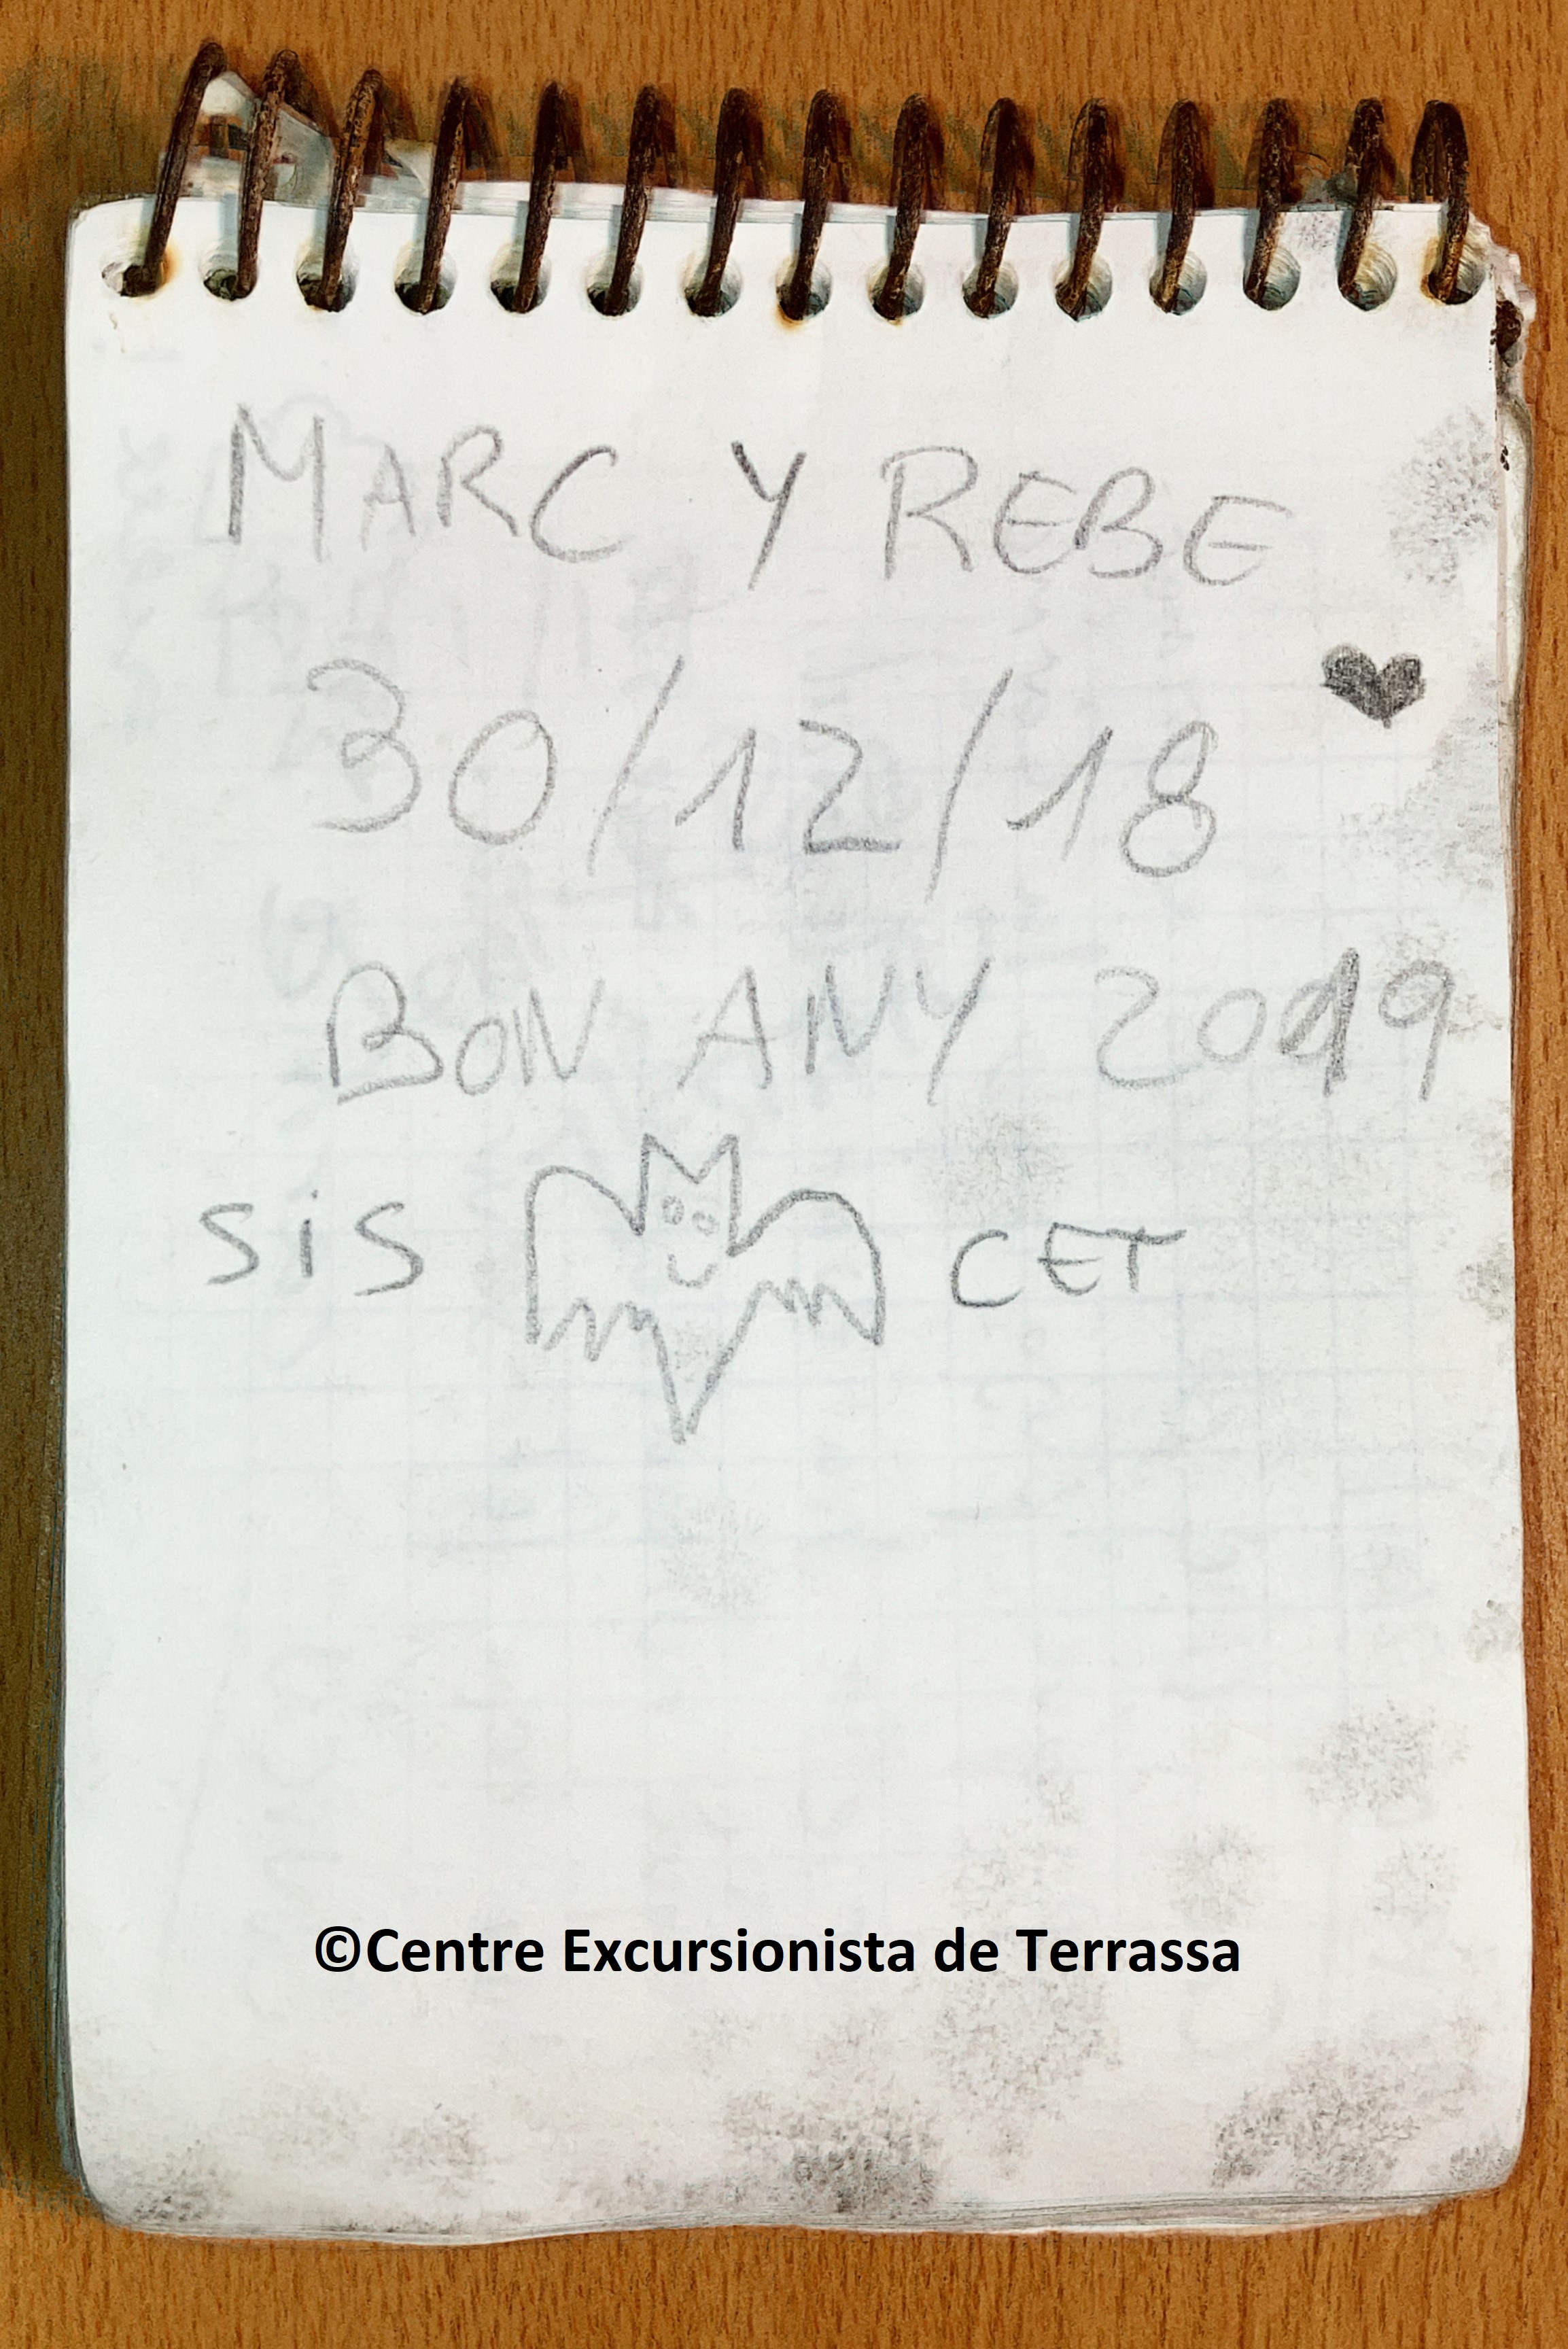 MARC Y REBE
30/12/18
BON ANY 2019
SiS CET
©Centre Excursionista de Terrassa